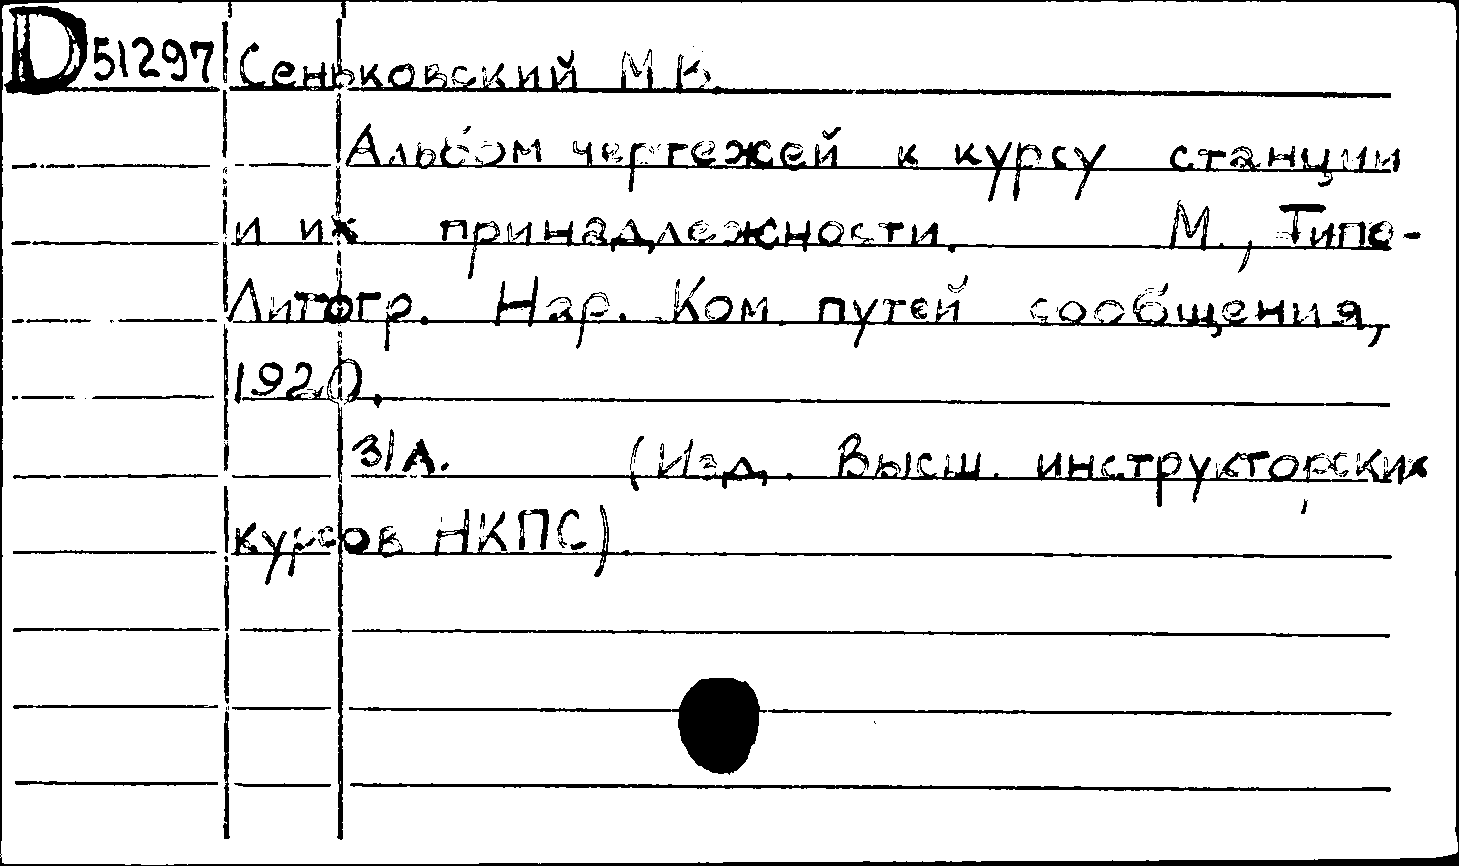 D 51297 Сеньковский М.В.
Альбом чертежей к курсу станции
и их принадлежности. М., Типо-
Литогр. Нар. Ком путей сообщения,
1920.
31л. (Изд. Высш. инструкторских
курсов НКПС).